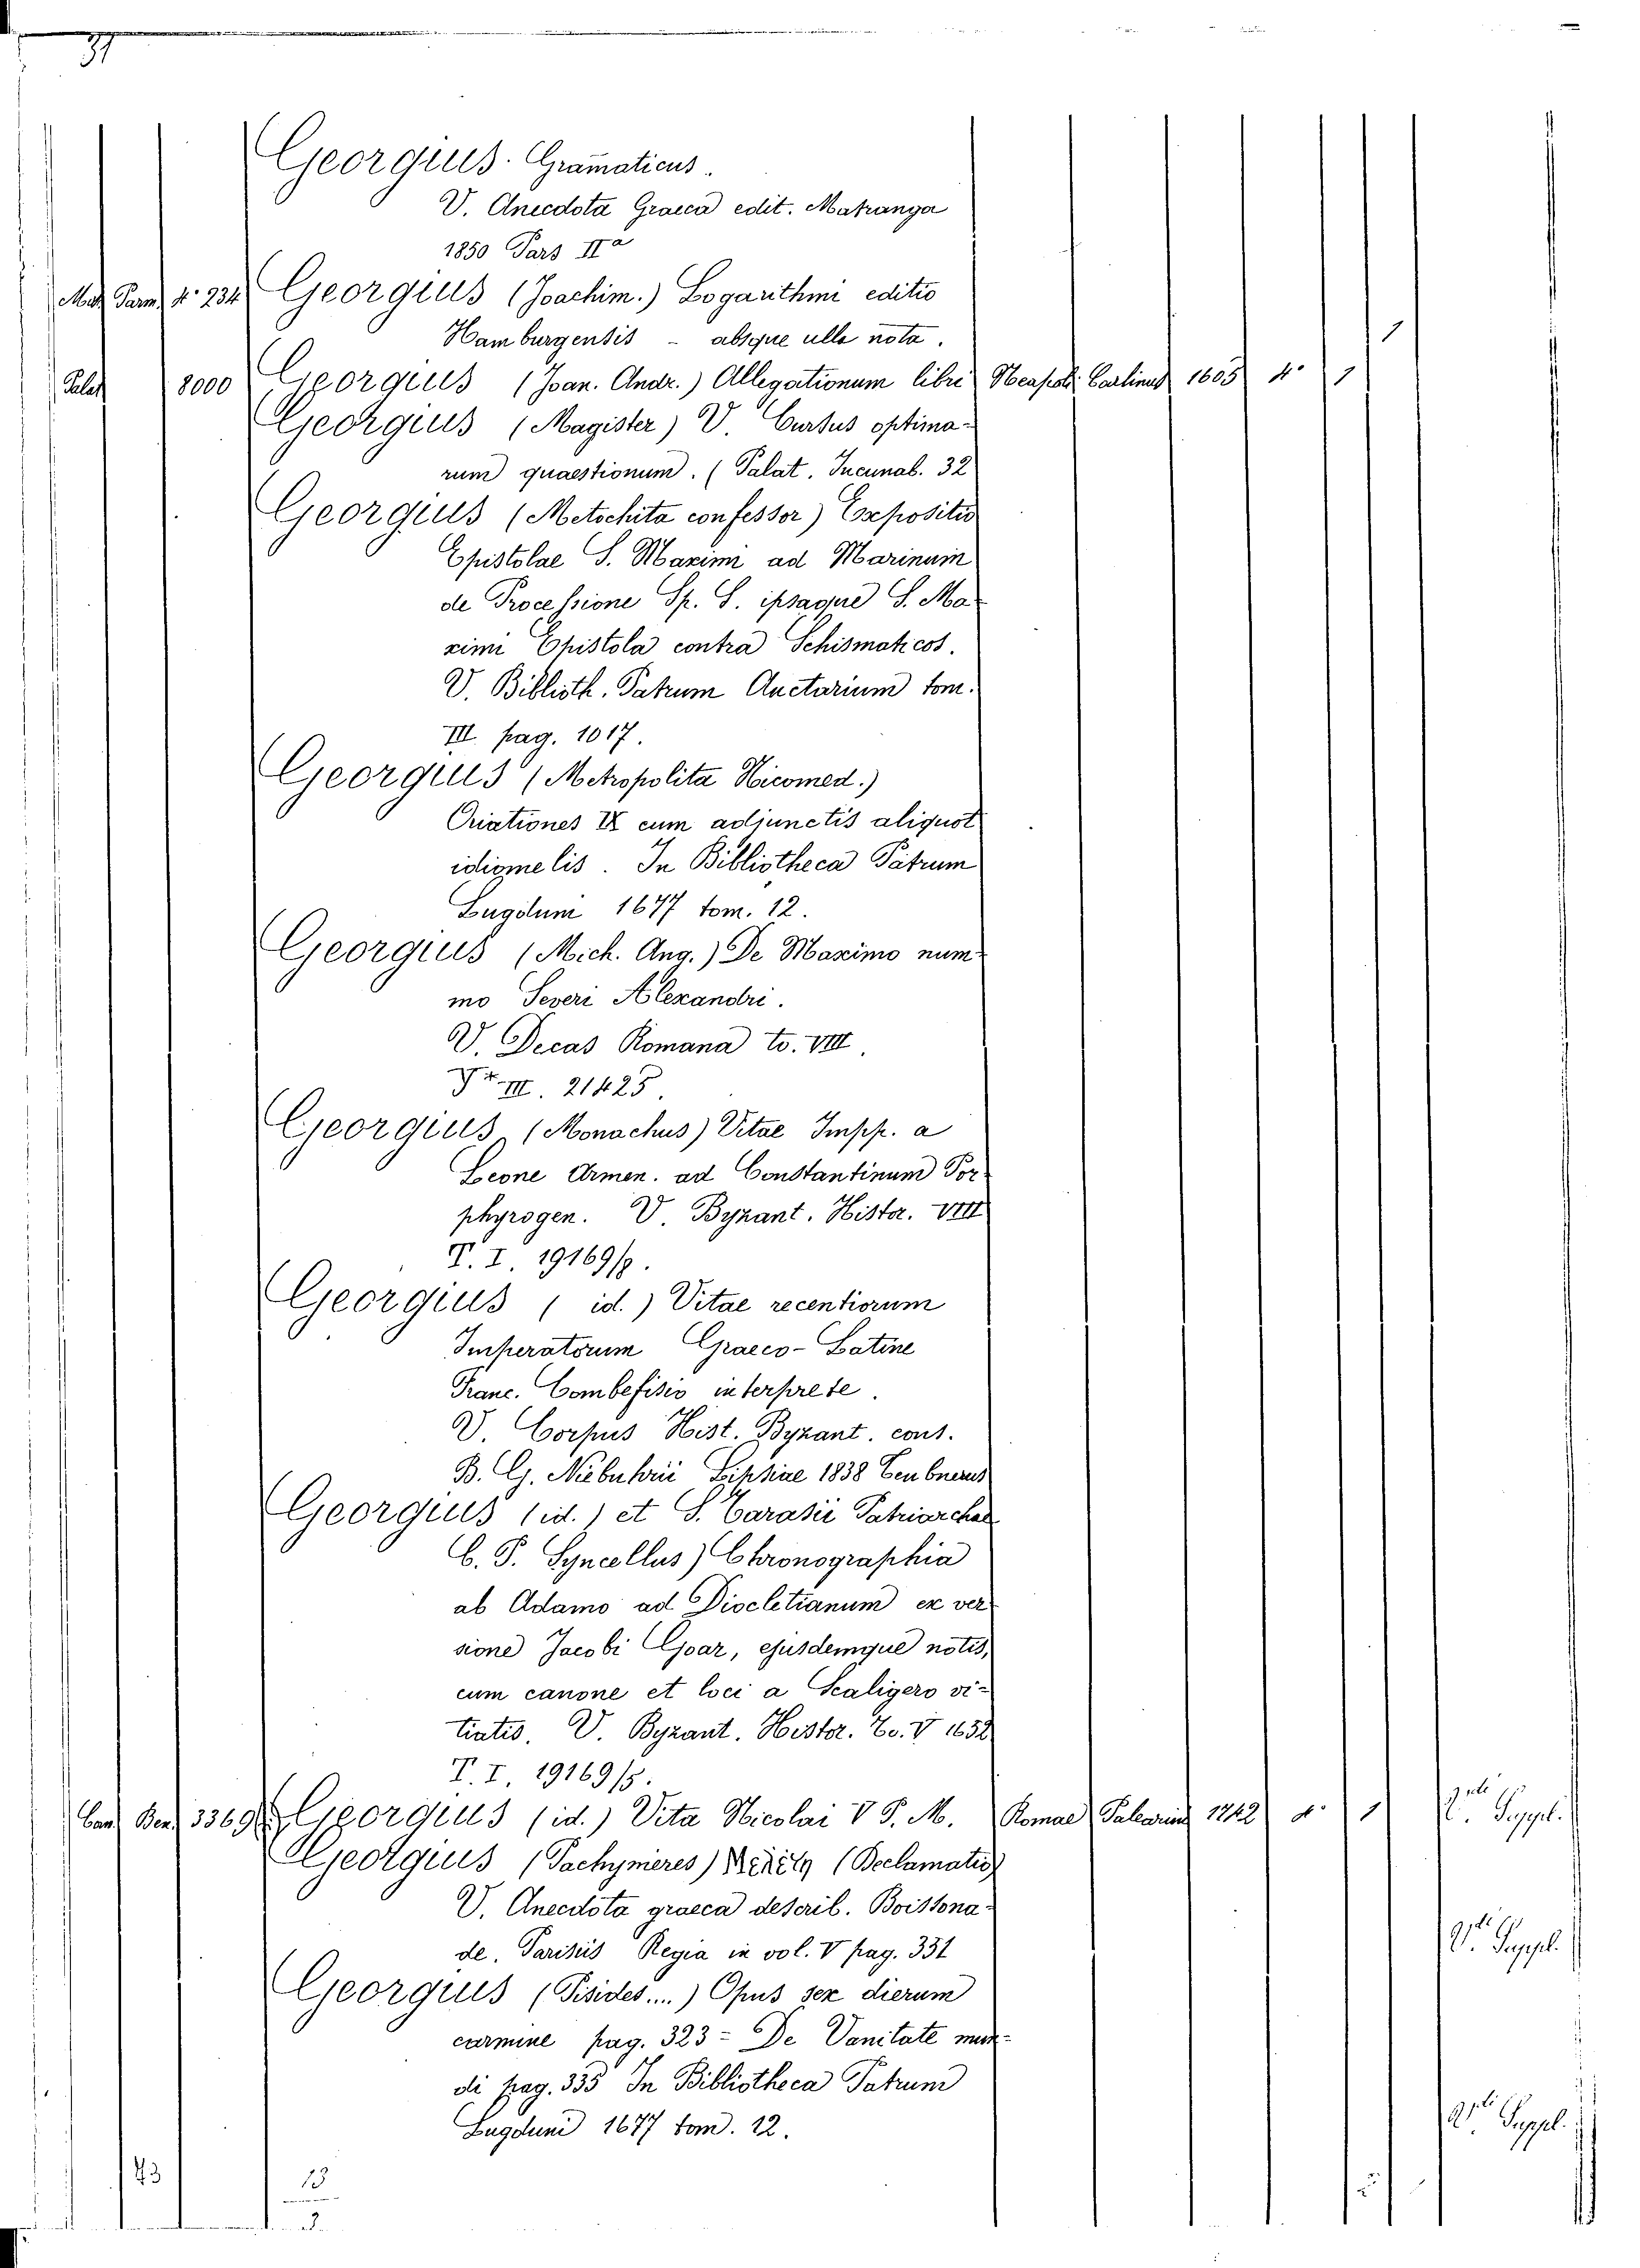 Georgius. Gram̃aticus.
V. Anecdota Graeca edit. Matranga
1850 Pars IIa
Parm. 4° 234 Georgius (Joachim.) Logarithmi editio
Hamburgensis - absque ulla nota. 1
Palat 8000 Georgius (Joan. Andr.) Allegationum libri Neapoli Carlinus 1605 4° 1
Georgius (Magister) V. Cursus optima-
rum quaestionum. (Palat. Incunab. 32
Georgius (Metochita confessor) Expositio
Epistolae S. Maximi ad Marinum
de Processione Sp. S. ipsaque S. Ma
ximi Epistola contra Schismaticos.
V. Biblioth. Patrum Auctarium tom.
III pag. 1017.
Georgius (Metropolita Nicomed.)
Oriationes IX cum adjunctis aliquot
idiomelis. In Bibliotheca Patrum
Lugdum 1677 tom. 12.
Georgius (Mich. Ang.) De Maximo num-
mo Severi Alexandri.
V. Decas Romana to. VIII.
III. 21425.
Georgius (Monachus) Vitae Impp. a
Leone Armen. ad Constantinum Por-
phyrogen. V. Byzant. Histor. VIII
T. I. 19169/8.
Georgius (id.) Vitae recentiorum
Imperatorum Graeco-Latine
Franc. Combefisio interprete.
V. Corpus Hist. Byzant. cons.
B. G. Niebuhrii Lipsiae 1838 Teubnerus
Georgius (id.) et S. Tarasii Patriarchae
C. P. Syncellus) Chronographia
ab Adamo ad Diocletianum ex ver
sione Jacobi Goar, ejusdemque notis,
cum canone et loci a Scaligero vi-
tiatis. V. Byzant. Histor. To. V 1652
T. I. 19169/5.
Ben. 3369 Georgius (id.) Vita Nicolai V P. M. Romae Palearini 1742 4° 1 V. Suppl.
Georgius (Pachymeres) Μελέτη (Declamatio)
V. Anecdota graeca describ. Boissona-
de. Parisiis Regia in vol. V pag. 351 Suppl.
Georgius (Pisides....) Opus sex dierum
carmine pag. 323 = De Vanitate mun-
di pag. 335 In Bibliotheca Patrum
Lugduni 1677 tom. 12. Suppl.
43 13
3